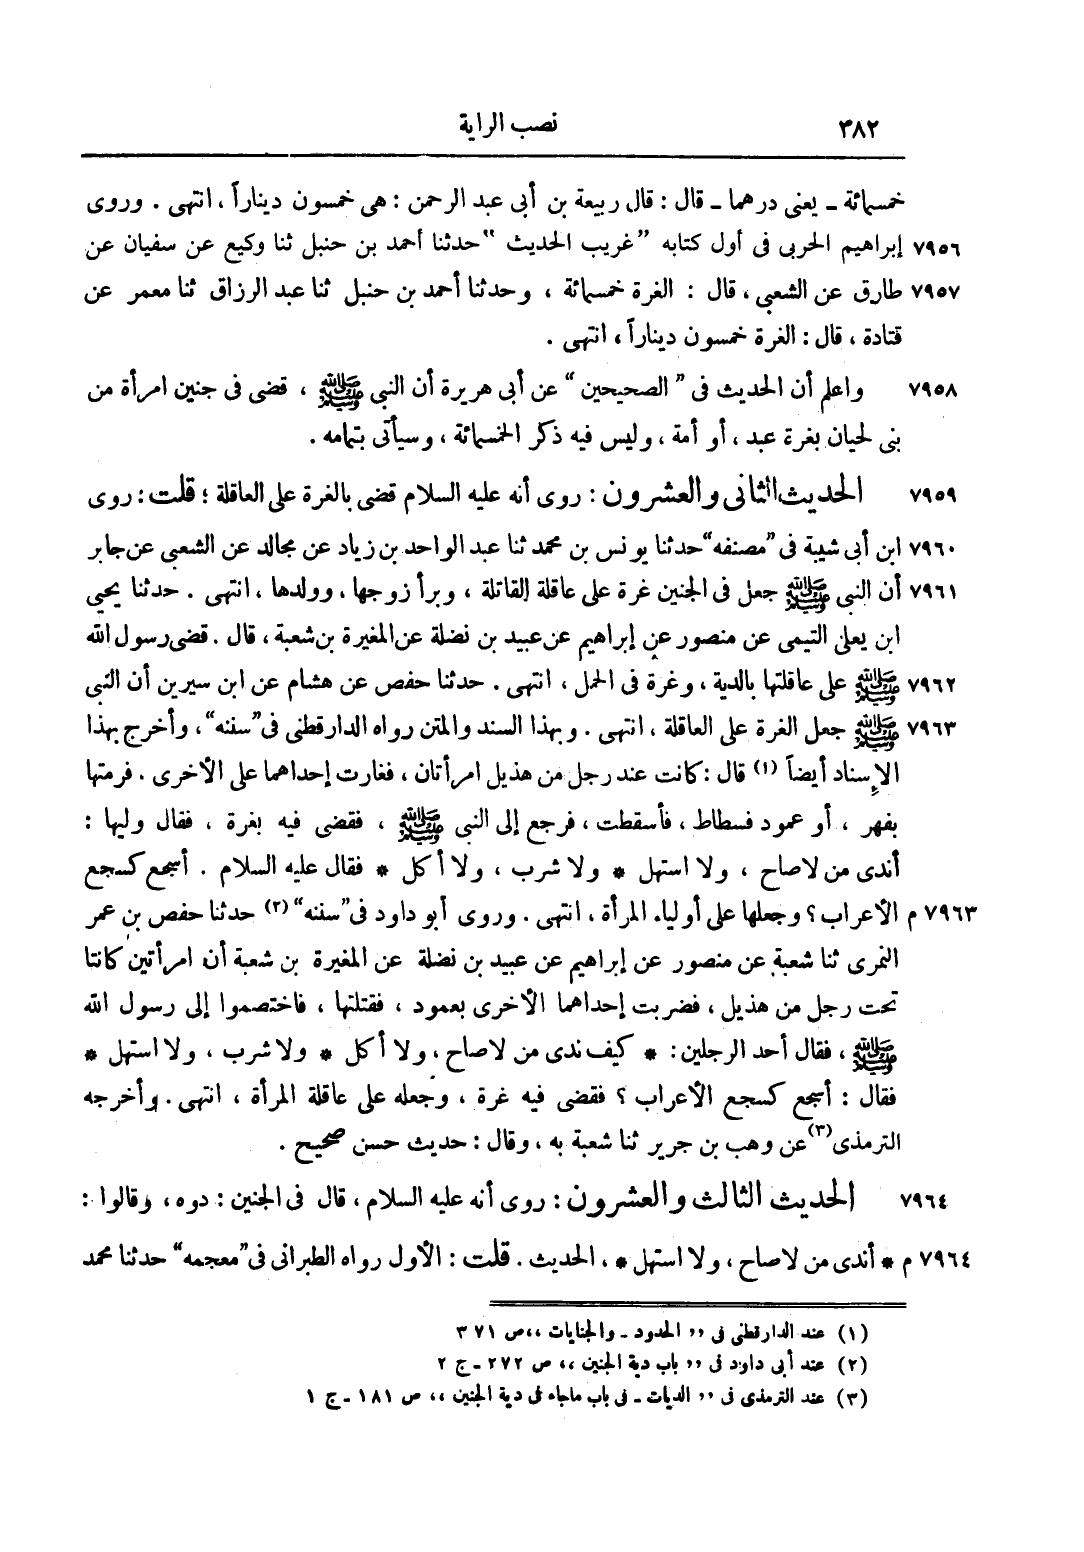 ٣٨٢ نصب الراية
خمسمائة ـ يعنى درهما ـ قال : قال ربيعة بن أبى عبد الرحمن : هى خمسون ديناراً ، انتهى . وروى
٧٩٥٦ إبراهيم الحربى فى أول كتابه "غريب الحديث" حدثنا أحمد بن حنبل ثنا وكيع عن سفيان عن
٧٩٥٧ طارق عن الشعبى ، قال : الغرة خمسمائة ، وحدثنا أحمد بن حنبل ثنا عبد الرزاق ثنا معمر عن
قتادة ، قال : الغرة خمسون ديناراً ، انتهى .
٧٩٥٨ واعلم أن الحديث فى "الصحيحين" عن أبى هريرة أن النبى ﷺ ، قضى فى جنين امرأة من
بنى لحيان بغرة عبد ، أو أمة ، وليس فيه ذكر الخمسمائة ، وسيأتى بتمامه .
٧٩٥٩ الحديث الثانى والعشرون : روى أنه عليه السلام قضى بالغرة على العاقلة ؛ قلت : روى
٧٩٦٠ ابن أبى شيبة فى "مصنفه" حدثنا يونس بن محمد ثنا عبد الواحد بن زياد عن مجالد عن الشعبى عن جابر
٧٩٦١ أن النبى ﷺ جعل فى الجنين غرة على عاقلة القاتلة ، وبرأ زوجها ، وولدها ، انتهى . حدثنا يحيى
ابن يعلى التيمى عن منصور عن إبراهيم عن عبيد بن نضلة عن المغيرة بن شعبة ، قال . قضى رسول الله
٧٩٦٢ ﷺ على عاقلتها بالدية ، وغرة فى الحمل ، انتهى . حدثنا حفص عن هشام عن ابن سيرين أن النبى
٧٩٦٣ ﷺ جعل الغرة على العاقلة ، انتهى . وبهذا السند والمتن رواه الدارقطنى فى "سننه" ، وأخرج بهذا
الإسناد أيضاً (١) قال : كانت عند رجل من هذيل امرأتان ، فغارت إحداهما على الأخرى . فرمتها
بفهر ، أو عمود فسطاط ، فأسقطت ، فرجع إلى النبى ﷺ ، فقضى فيه بغرة ، فقال وليها :
أندى من لاصاح ، ولا استهل * ولا شرب ، ولا أكل * فقال عليه السلام . أسجع كسجع
٧٩٦٣ م الأعراب ؟ وجعلها على أولياء المرأة ، انتهى . وروى أبو داود فى "سننه" (٢) حدثنا حفص بن عمر
النمرى ثنا شعبة عن منصور عن إبراهيم عن عبيد بن نضلة عن المغيرة بن شعبة أن امرأتين كانتا
تحت رجل من هذيل ، فضربت إحداهما الأخرى بعمود ، فقتلتها ، فاختصموا إلى رسول الله
ﷺ ، فقال أحد الرجلين : * كيف ندى من لاصاح ، ولا أكل * ولا شرب ، ولا استهل *
فقال : أسجع كسجع الأعراب ؟ فقضى فيه غرة ، وجعله على عاقلة المرأة ، انتهى . وأخرجه
الترمذى (٣) عن وهب بن جرير ثنا شعبة به ، وقال : حديث حسن صحيح .
٧٩٦٤ الحديث الثالث والعشرون : روى أنه عليه السلام ، قال فى الجنين : دوه ، وقالوا :
٧٩٦٤ م * أندى من لاصاح ، ولا استهل * ، الحديث . قلت : الأول رواه الطبرانى فى "معجمه" حدثنا محمد
(١) عند الدارقطنى فى ,, الحدود ـ والجنايات ،، ص ٣٧١
(٢) عند أبى داود فى ,, باب دية الجنين ،، ص ٢٧٢ ـ ج ٢
(٣) عند الترمذى فى ,, الديات ـ فى باب ماجاء فى دية الجنين ،، ص ١٨١ ـ ج ١